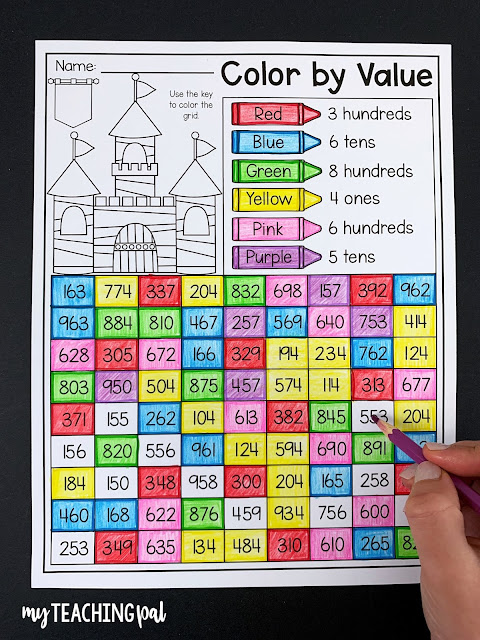 Name:
Color by Value
Use the key
to color the
grid.
Red 3 hundreds
Blue 6 tens
Green 8 hundreds
Yellow 4 ones
Pink 6 hundreds
Purple 5 tens
163 774 337 204 832 698 157 392 962
963 884 810 467 257 569 640 753 414
628 305 672 166 329 194 234 762 124
803 950 504 875 457 574 114 313 677
371 155 262 104 613 382 845 553 204
156 820 556 961 124 594 690 891
184 150 348 958 300 204 165 258
460 168 622 876 459 934 756 600
253 349 635 134 484 310 610 265
my TEACHING pal